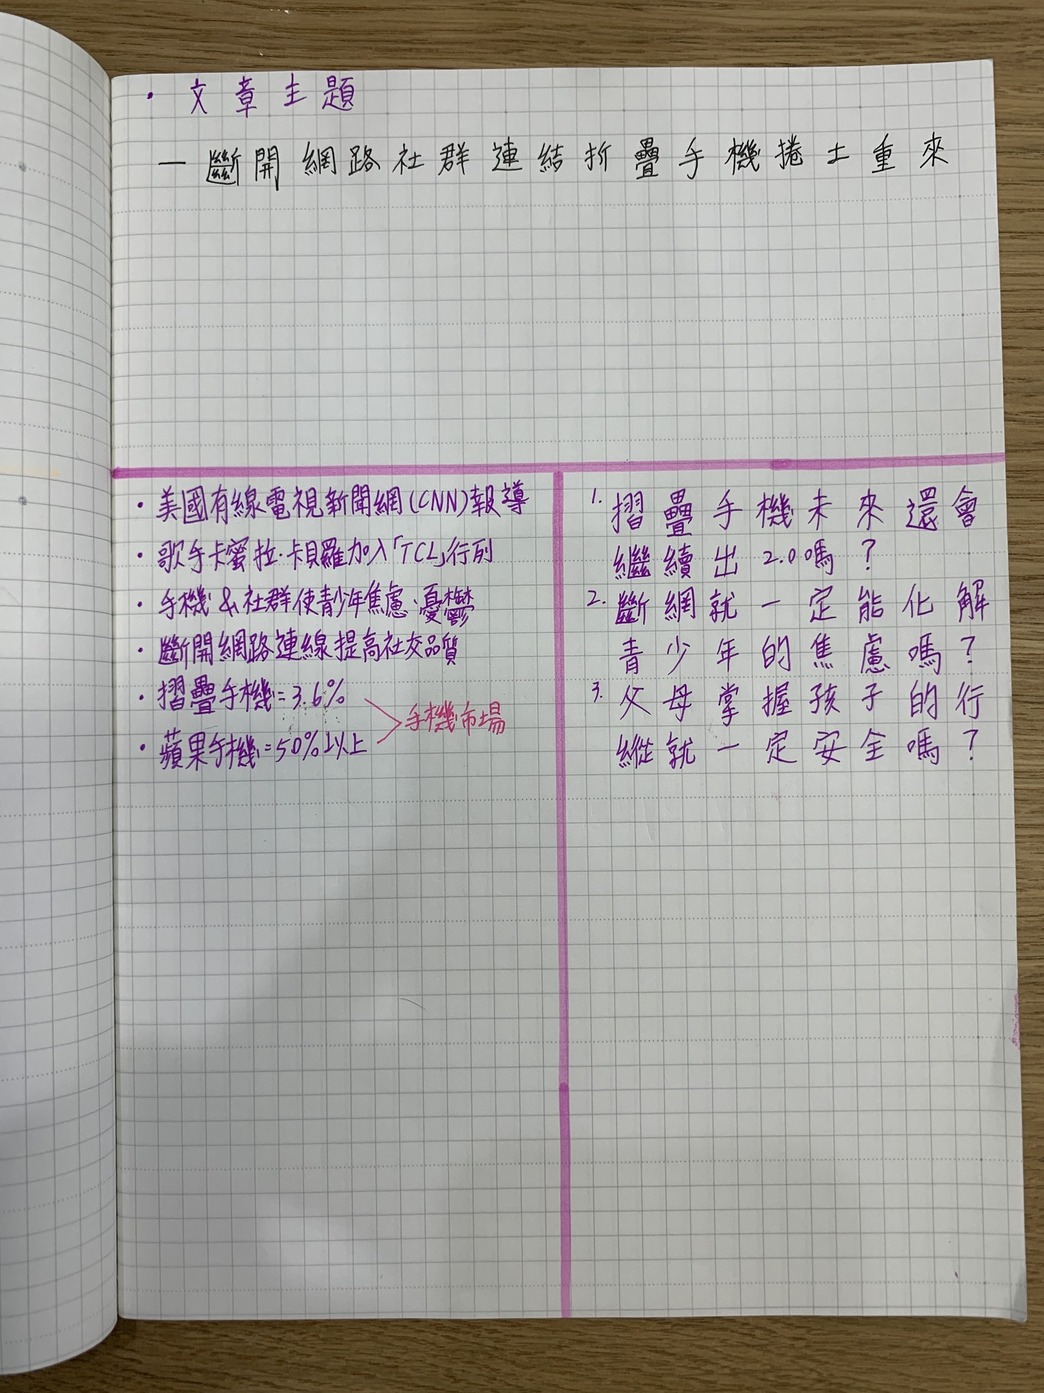 ・文章主題
一斷開網路社群連結折疊手機捲土重來
・美國有線電視新聞網(CNN)報導
・歌手卡蜜拉·卡貝羅加入「TCL」行列
・手機&社群使青少年焦慮、憂鬱
・斷開網路連線提高社交品質
・摺疊手機=3.6%
・蘋果手機=50%以上
手機市場
1. 摺疊手機未來還會
繼續出2.0嗎?
2. 斷網就一定能化解
青少年的焦慮嗎?
3. 父母掌握孩子的行
縱就一定安全嗎?